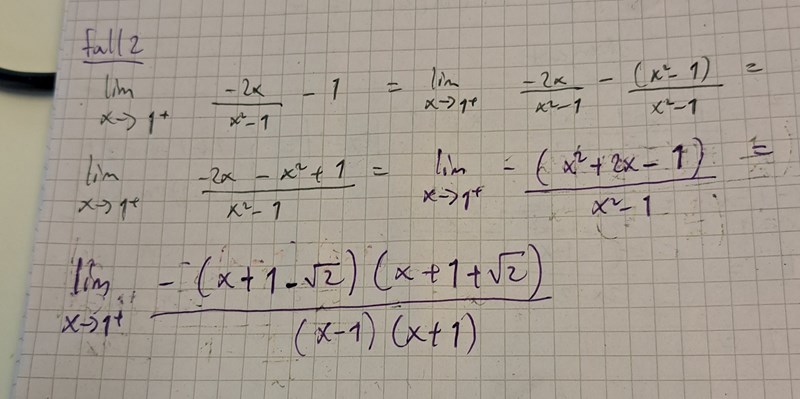 fall 2
lim x→1+ -2x/(x²-1) - 1 = lim x→1+ -2x/(x²-1) - (x²-1)/(x²-1) =
lim x→1+ (-2x - x² + 1)/(x²-1) = lim x→1+ -(x²+2x-1)/(x²-1) =
lim x→1+ -(x+1-√2)(x+1+√2)/((x-1)(x+1))